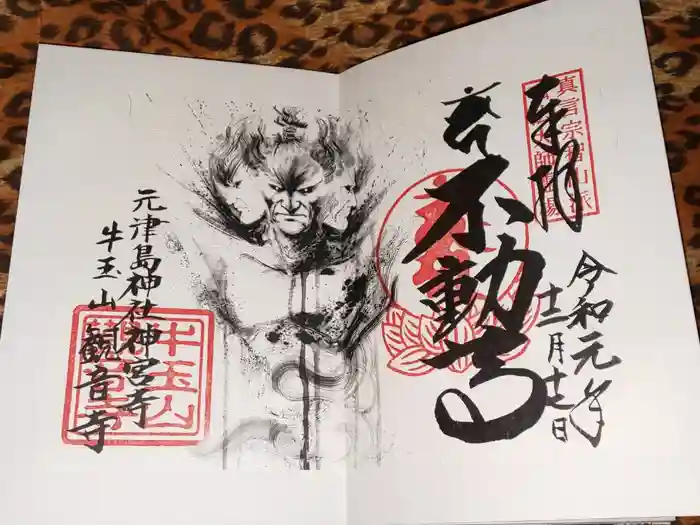 奉拝
真言宗智山派
不動尊
令和元年
十二月十二日
元津島神社神宮寺
牛玉山観音寺
牛玉山